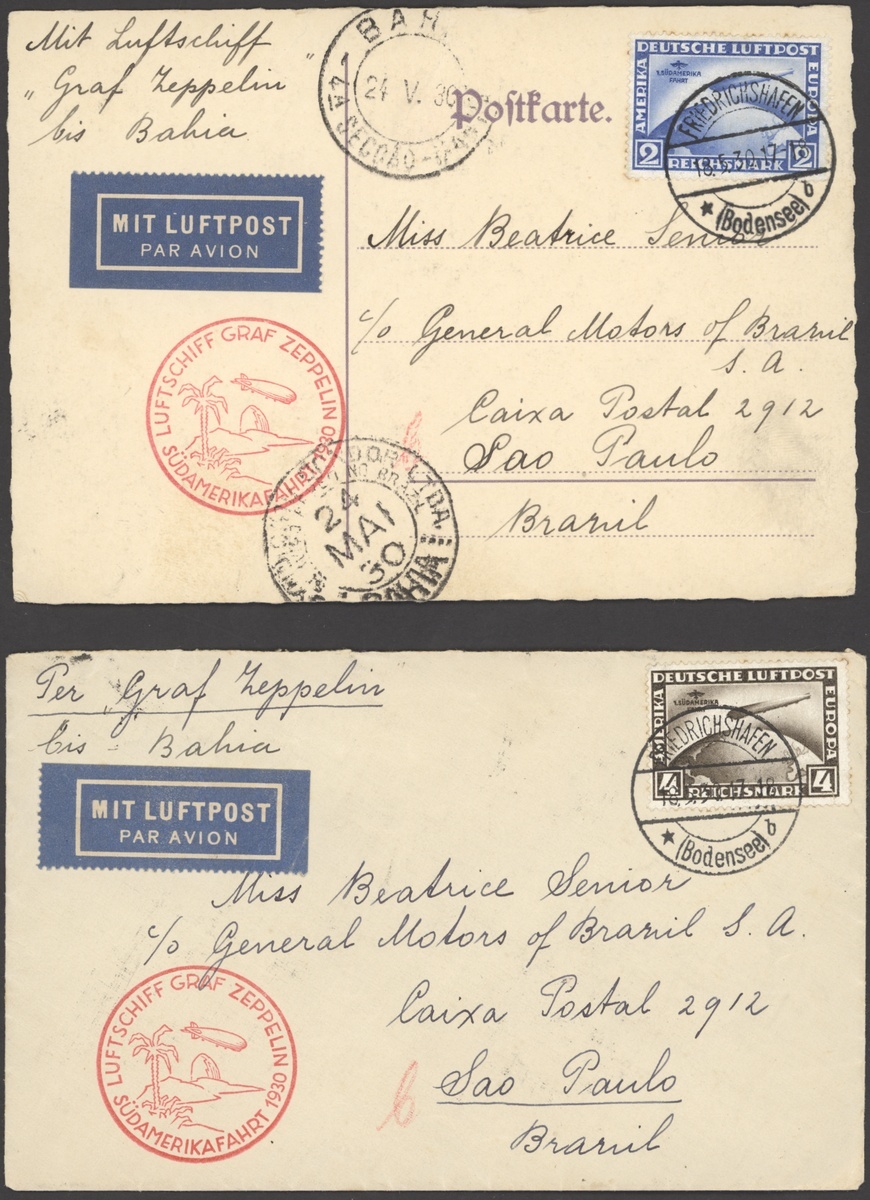 Mit Luftschiff
„Graf Zeppelin"
bis Bahia
24 V. 30
Postkarte.
DEUTSCHE LUFTPOST
AMERIKA
EUROPA
1.SÜDAMERIKA
FAHRT
2 REICHSMARK 2
FRIEDRICHSHAFEN
18.5.30.17-18
★ (Bodensee) b
MIT LUFTPOST
PAR AVION
Miss Beatrice Senior
c/o General Motors of Brazil
S. A.
Caixa Postal 2912
Sao Paulo
Brazil
LUFTSCHIFF GRAF ZEPPELIN
SÜDAMERIKAFAHRT 1930
b
24
MAI
30
BAHIA
Per Graf Zeppelin
bis - Bahia
DEUTSCHE LUFTPOST
AMERIKA
EUROPA
1.SÜDAMERIKA
FAHRT
4 REICHSMARK 4
FRIEDRICHSHAFEN
18.5.30.17-18
★ (Bodensee) b
MIT LUFTPOST
PAR AVION
Miss Beatrice Senior
c/o General Motors of Brazil S. A.
Caixa Postal 2912
Sao Paulo
Brazil
LUFTSCHIFF GRAF ZEPPELIN
SÜDAMERIKAFAHRT 1930
b